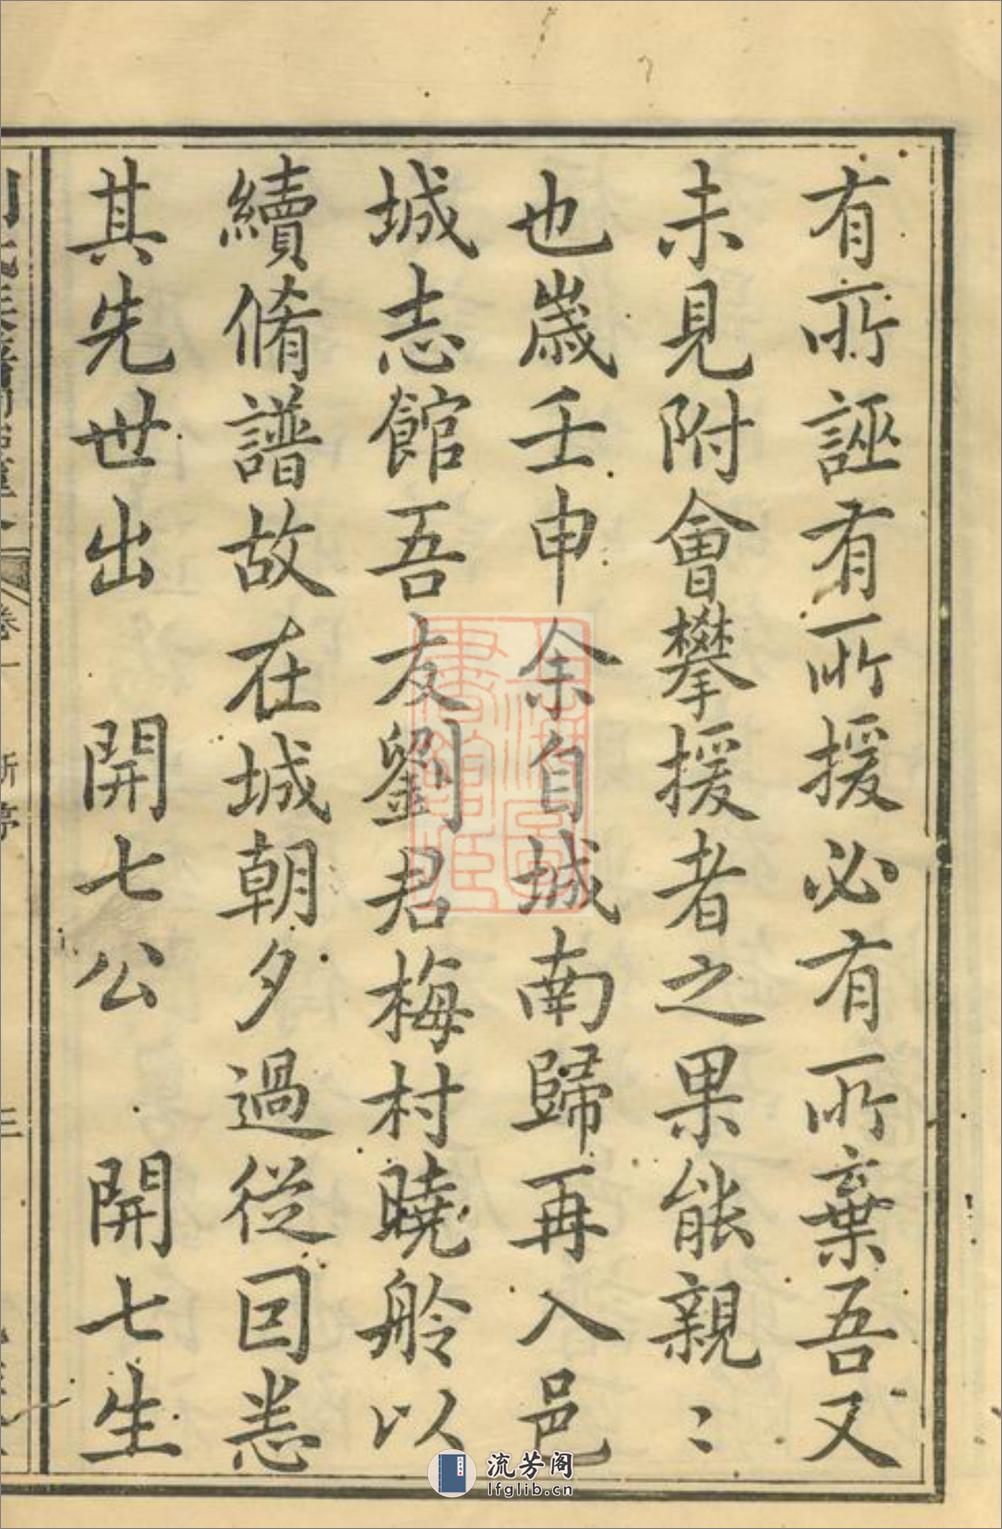 有所誣有所援必有所棄吾又
未見附會攀援者之果能親〻
也嵗壬申余自城南歸再入邑
城志館吾友劉君梅村曉舲以
續脩譜故在城朝夕過從因悉
其先世出　開七公　開七生
卷一
新亭
三
流芳阁
lfglib.cn